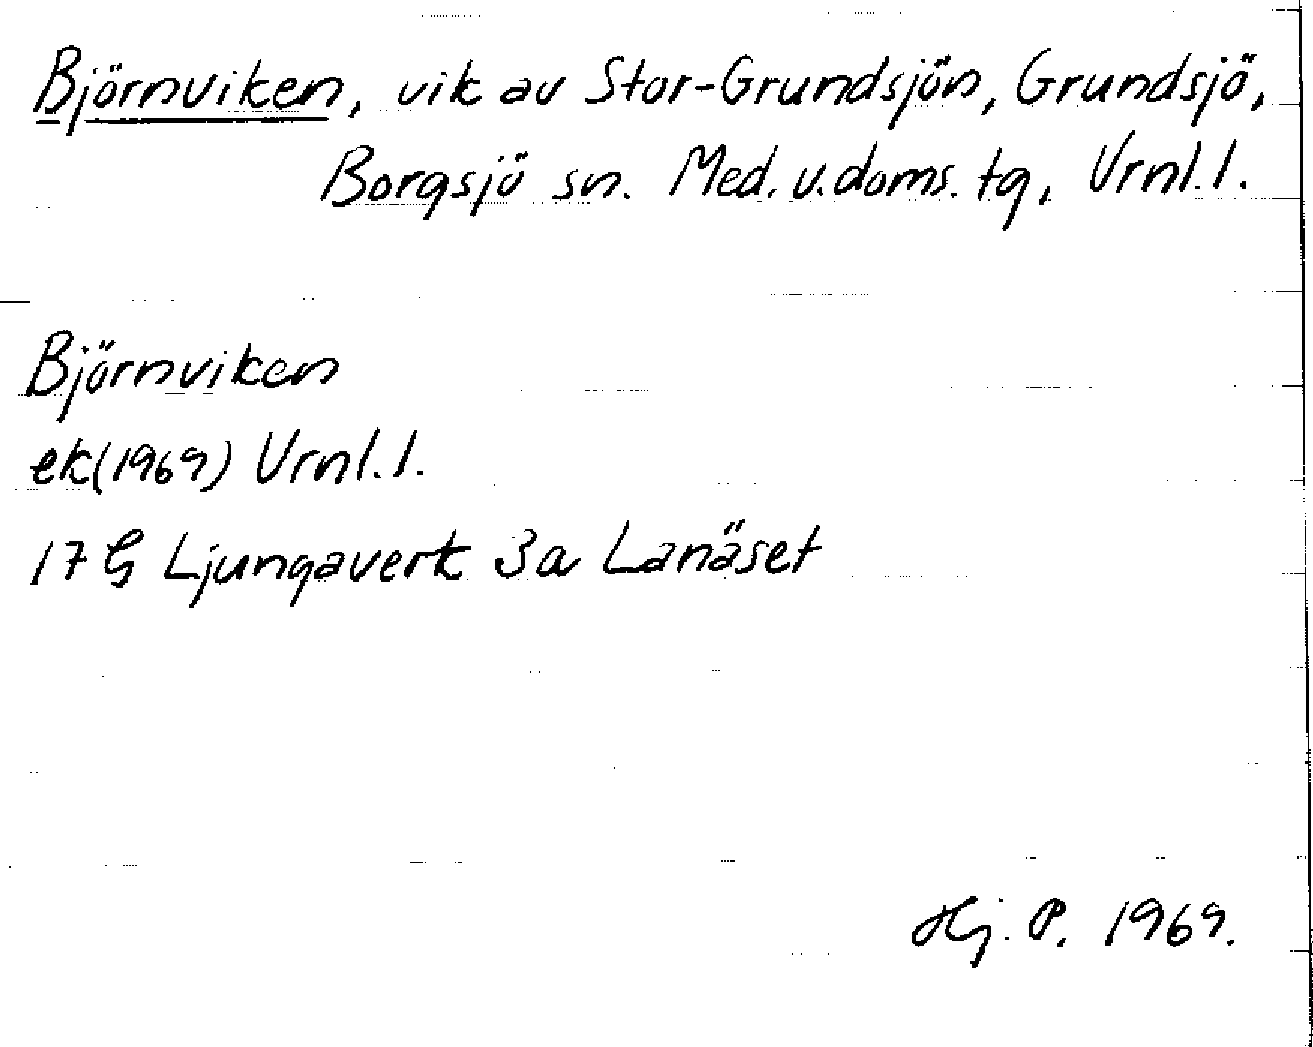 Björnviken, vik av Stor-Grundsjön, Grundsjö,
Borgsjö sn. Med. v. doms. tg, Vrnl. l.
Björnviken
ek (1969) Vrnl. l.
17 G Ljungaverk 3a Lanäset
Hj. P. 1969.